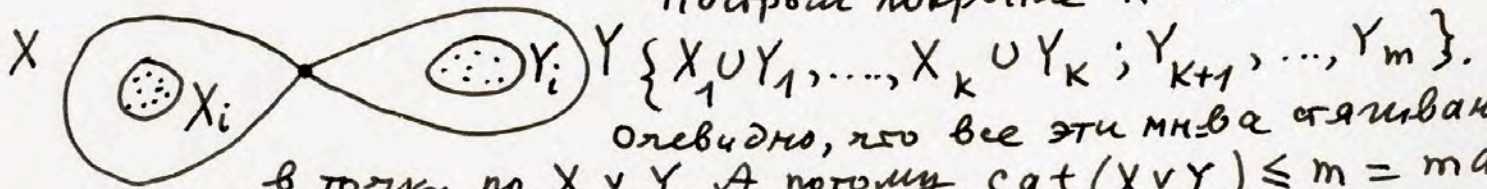 Построим покрытие
X X_i Y_i Y {X_1 ∪ Y_1, ...., X_k ∪ Y_k ; Y_{k+1}, ..., Y_m}.
Очевидно, что все эти мн-ва стягиван
в точку по X ∨ Y. А потому cat (X ∨ Y) ≤ m = ma